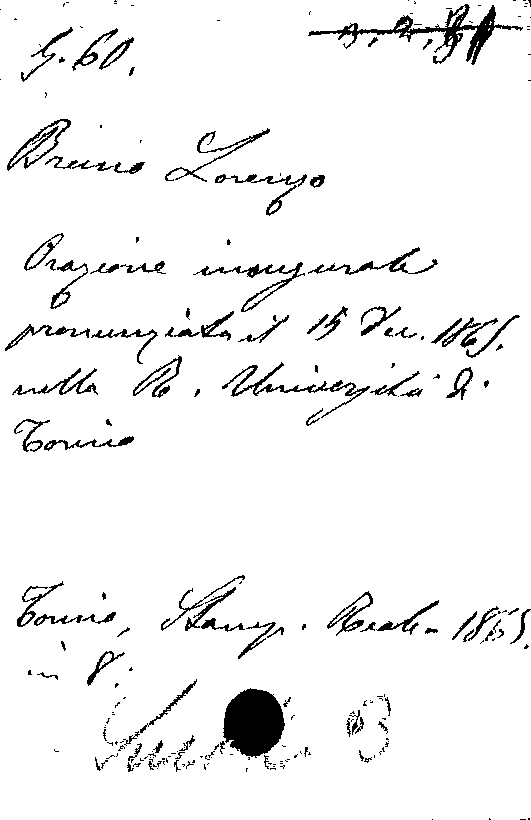 G. 60.
Bruno Lorenzo
Orazione inaugurale
pronunziata il 15 Dec. 1865.
nella R. Università di
Torino
Torino, Stamp. Reale - 1865.
in 8.